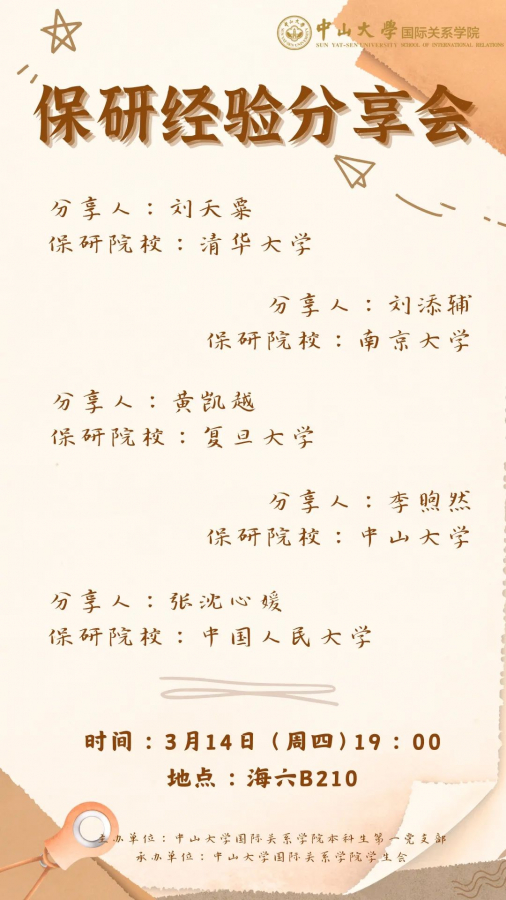 中山大學 国际关系学院
SUN YAT-SEN UNIVERSITY SCHOOL OF INTERNATIONAL RELATIONS
保研经验分享会
分享人：刘天粟
保研院校：清华大学
分享人：刘添辅
保研院校：南京大学
分享人：黄凯越
保研院校：复旦大学
分享人：李煦然
保研院校：中山大学
分享人：张沈心媛
保研院校：中国人民大学
时间：3月14日（周四)19：00
地点：海六B210
主办单位：中山大学国际关系学院本科生第一党支部
承办单位：中山大学国际关系学院学生会